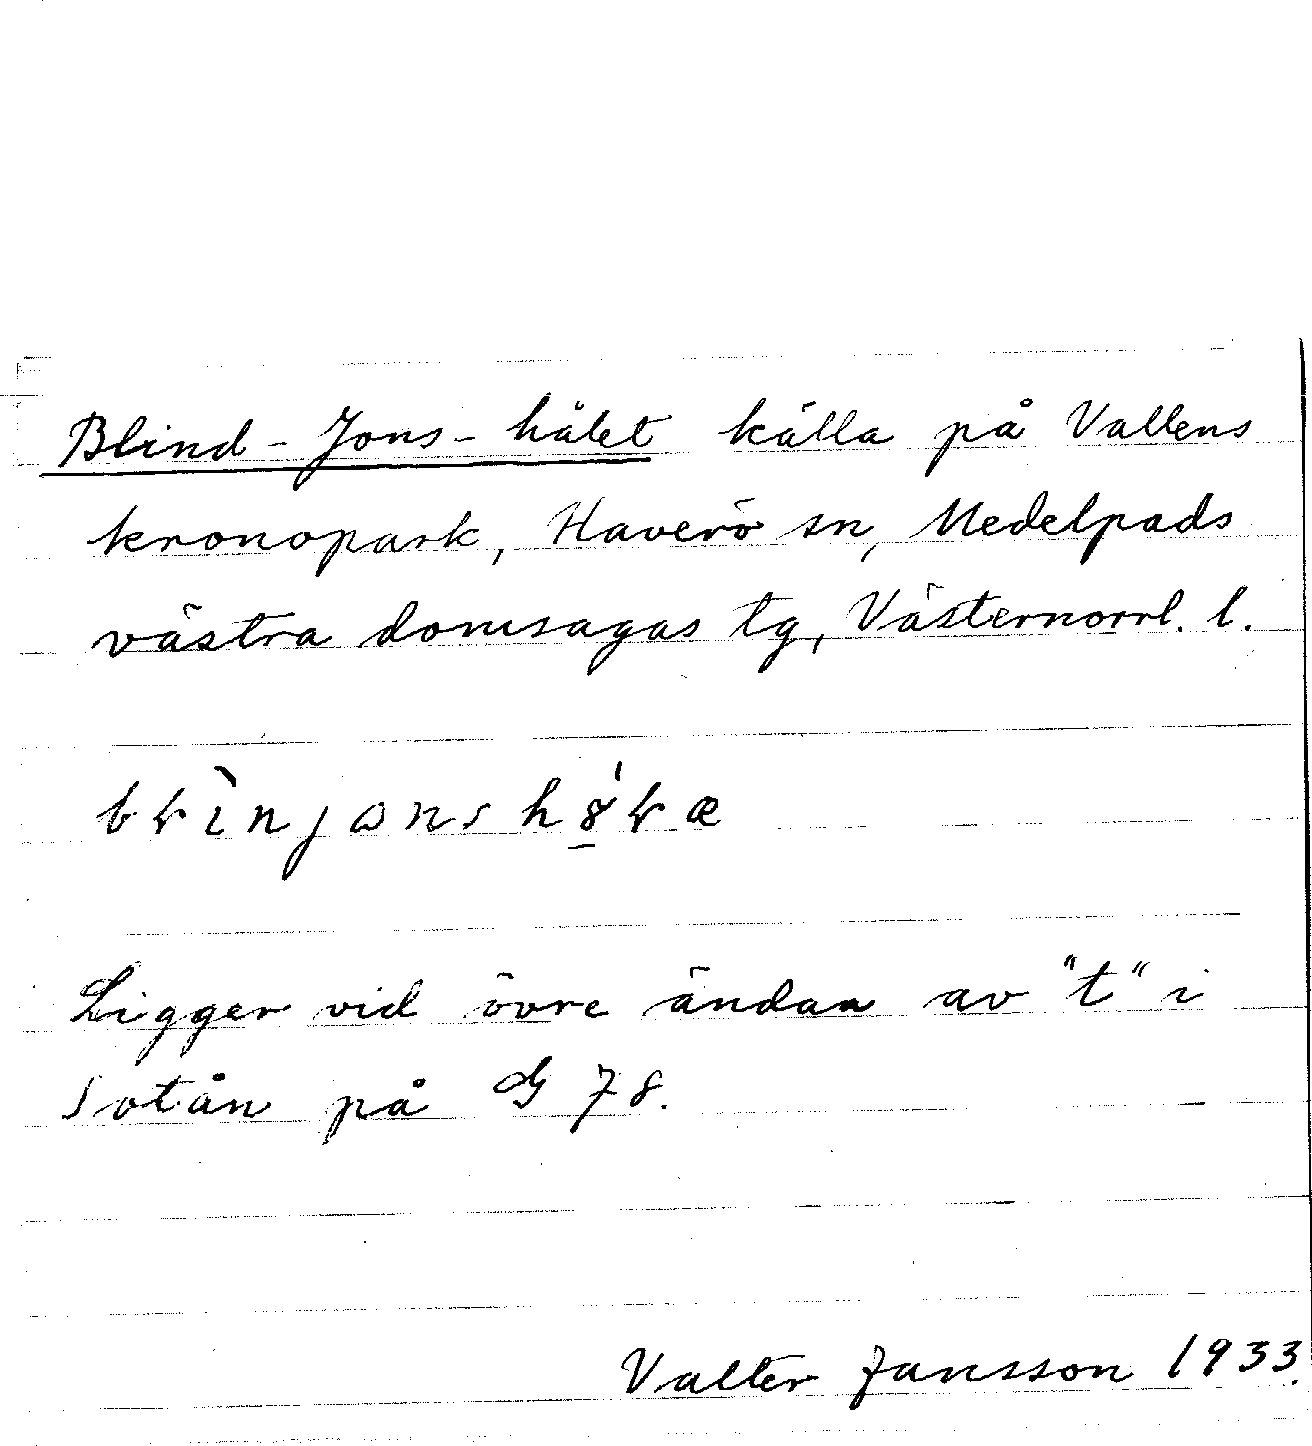 Blind-Jons-hålet källa på Vallens
kronopark, Haverö sn, Medelpads
västra domsagas tg, Västernorrl. l.
Ligger vid övre ändan av "t" i
Sotån på G 78.
Valter Jansson 1933.